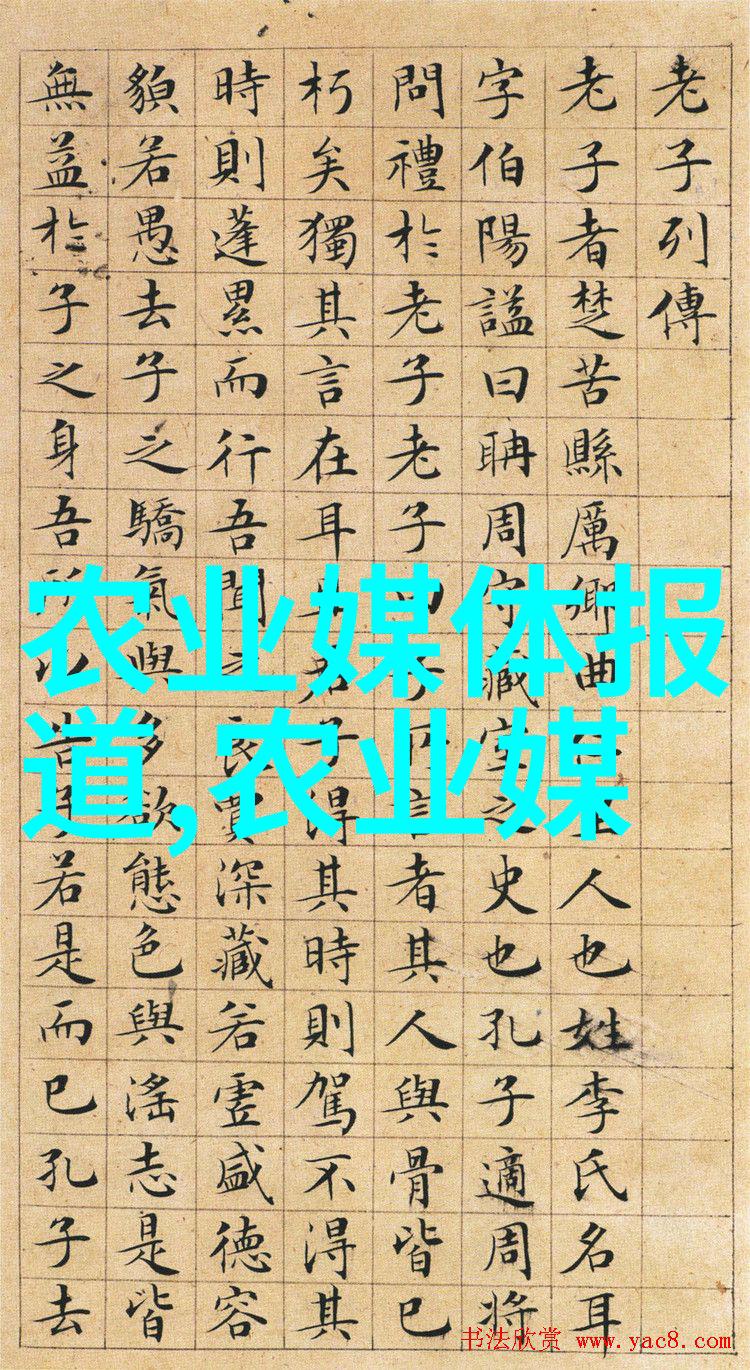 老子列傳
老子者楚苦縣厲鄉曲人也姓李氏名耳
字伯陽謚曰聃周守藏室之史也孔子適周將
問禮於老子老子曰子所言者其人與骨皆已
朽矣獨其言在耳且君子得其時則駕不得其
時則蓬累而行吾聞之良賈深藏若虛盛德容
貌若愚去子之驕氣與多欲態色與淫志是皆
無益於子之身吾所以告子若是而已孔子去
农业媒体报
道,农业媒
书法欣赏 www.yac8.com